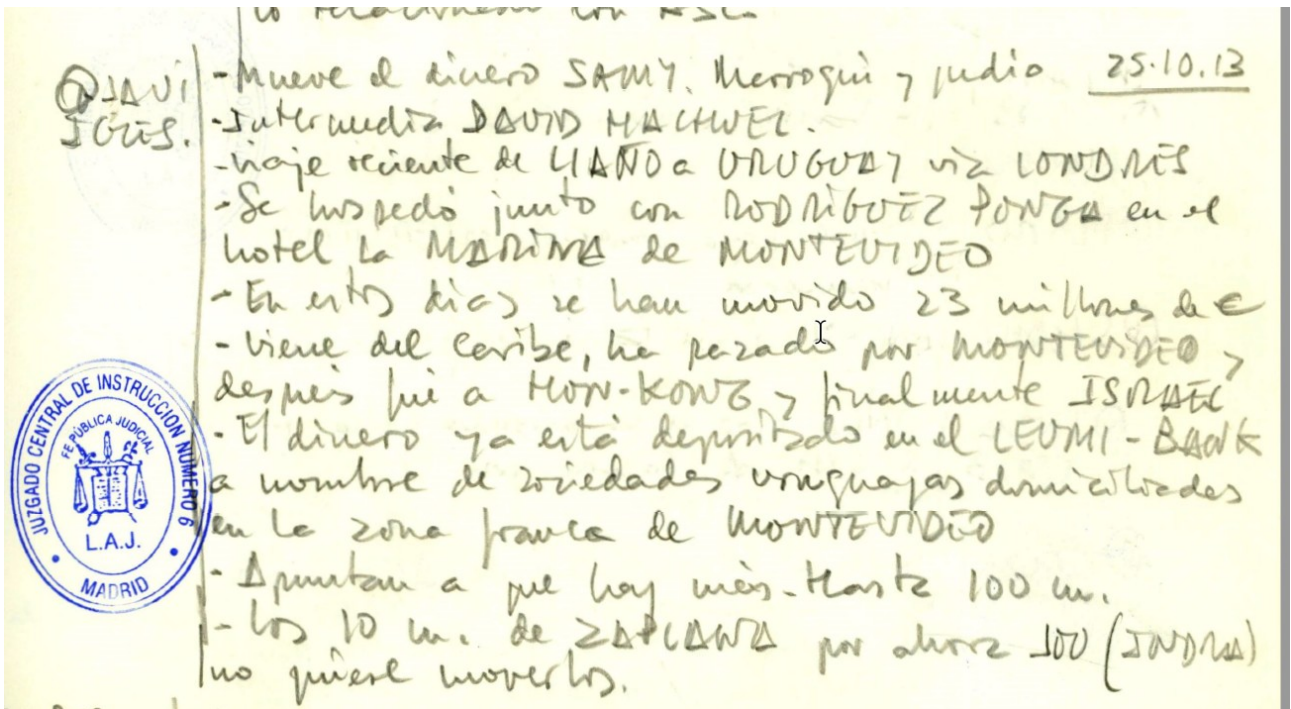 lo relacionado con
JAVI - Mueve el dinero SAMY. Marroquí y judio 25.10.13
IGLES. - Intermedia DAVID MACHUEL.
- viaje reciente de LIAÑO a URUGUAY via LONDRES
- Se hospedó junto con RODRÍGUEZ PONGA en el
hotel la MARINA de MONTEVIDEO
- En estos dias se han movido 23 millones de €
- Viene del Caribe, ha pasado por MONTEVIDEO y
después fué a HON-KONG y finalmente ISRAEL
- El dinero ya está depositado en el LEUMI-BANK
a nombre de sociedades uruguayas domiciliadas
en la zona franca de MONTEVIDEO
- Apuntan a que hay más. Hasta 100 m.
- Los 10 m. de ZAPLANA por ahora (INDRA)
no quiere moverlos.
JUZGADO CENTRAL DE INSTRUCCION NUMERO 6
FE PÚBLICA JUDICIAL
L.A.J.
MADRID